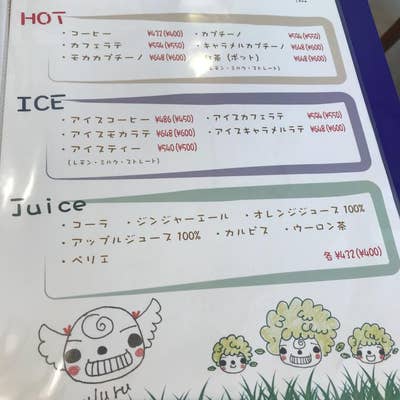 HOT
・コーヒー ¥432(¥400) ・カプチーノ ¥594(¥550)
・カフェラテ ¥594(¥550) ・キャラメルカプチーノ ¥648(¥600)
・モカカプチーノ ¥648(¥600) 茶（ポット） ¥648(¥600)
(レモン・ミルク・ストレート)
ICE
・アイスコーヒー ¥486(¥450) ・アイスカフェラテ ¥594(¥550)
・アイスモカラテ ¥648(¥600) ・アイスキャラメルラテ ¥648(¥600)
・アイスティー ¥540(¥500)
(レモン・ミルク・ストレート)
Juice
・コーラ ・ジンジャーエール ・オレンジジュース 100%
・アップルジュース 100% ・カルピス ・ウーロン茶
・ペリエ 各 ¥432(¥400)